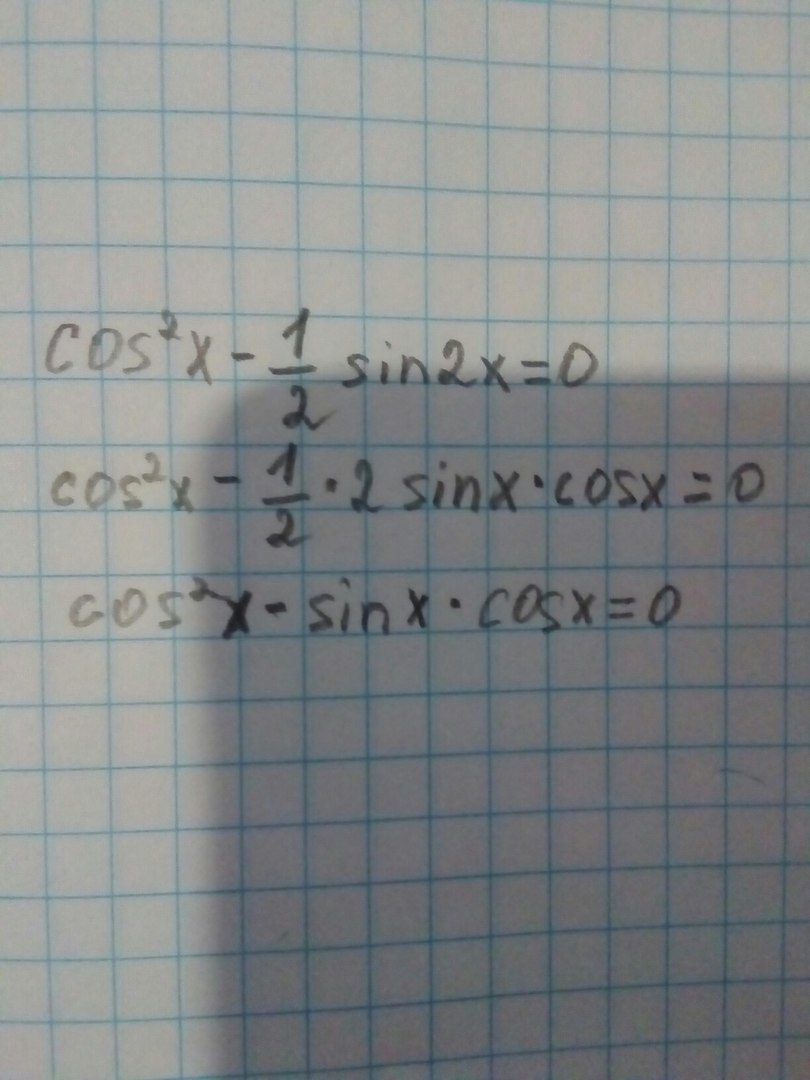 cos²x - 1/2 sin2x = 0
cos²x - 1/2 · 2 sinx · cosx = 0
cos²x - sinx · cosx = 0